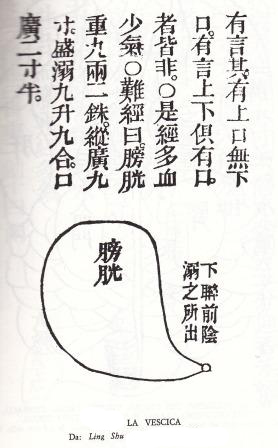 有言其有上口無下
口。有言上下俱有口。
者皆非。○是經多血
少氣○難經曰。膀胱
重九兩二銖。縱廣九
寸。盛溺九升九合。口
廣二寸半。
膀胱
下聯前陰
溺之所出
LA VESCICA
Da: Ling Shu